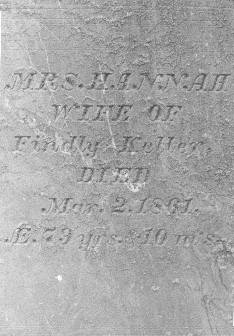 MRS. HANNAH
WIFE OF
Findly Keller,
DIED
Mar. 2. 1861.
Æ. 73 yrs. & 10 m's.